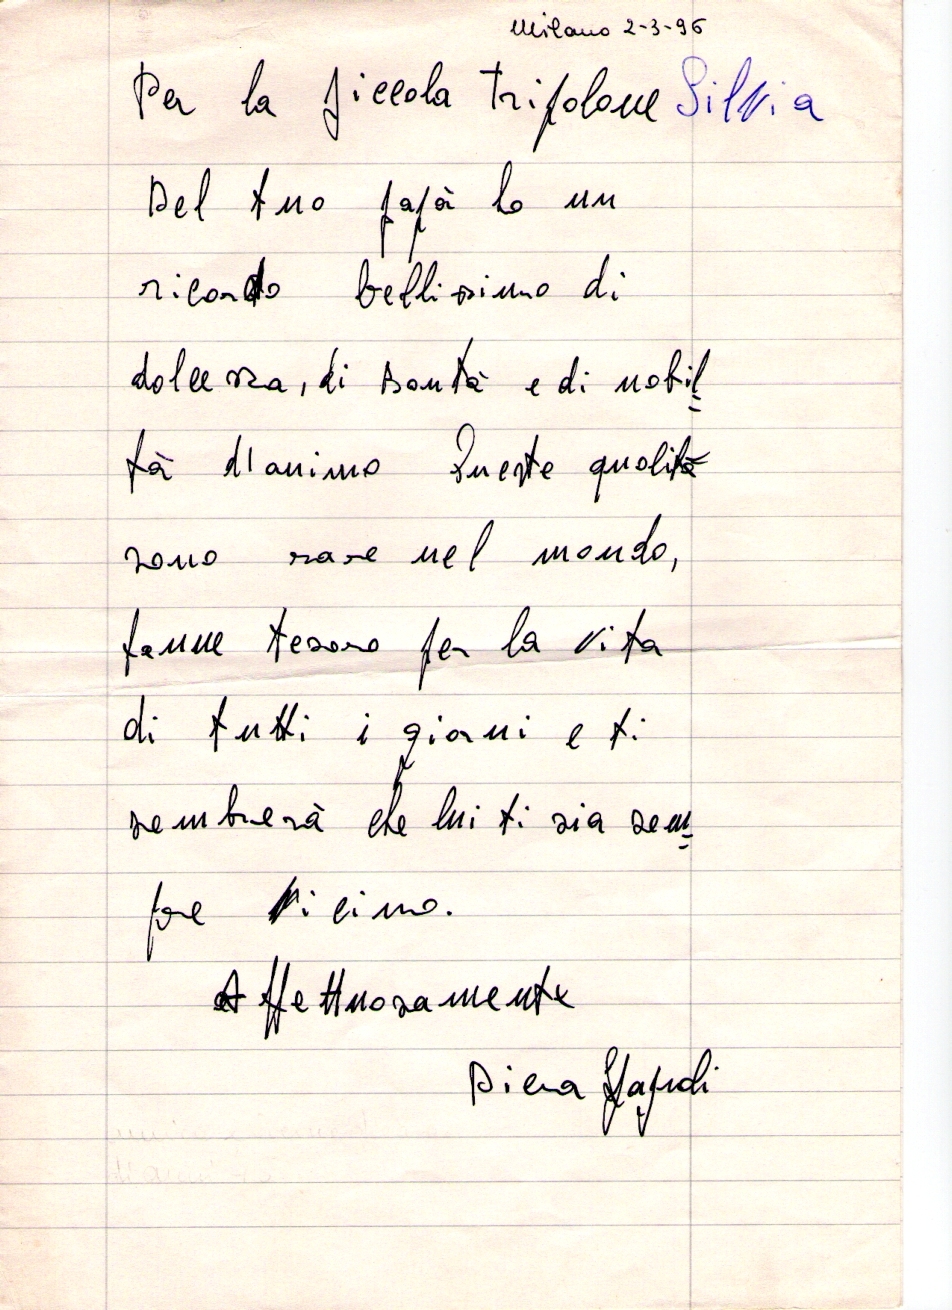 Milano 2-3-96
Per la piccola Tripolone Silvia
Del tuo papà ho un
ricordo bellissimo di
dolcezza, di bontà e di nobil
tà d'animo Queste qualità
sono rare nel mondo,
fanne tesoro per la vita
di tutti i giorni e ti
sembrerà che lui ti sia sem
pre vicino.
Affettuosamente
Piera